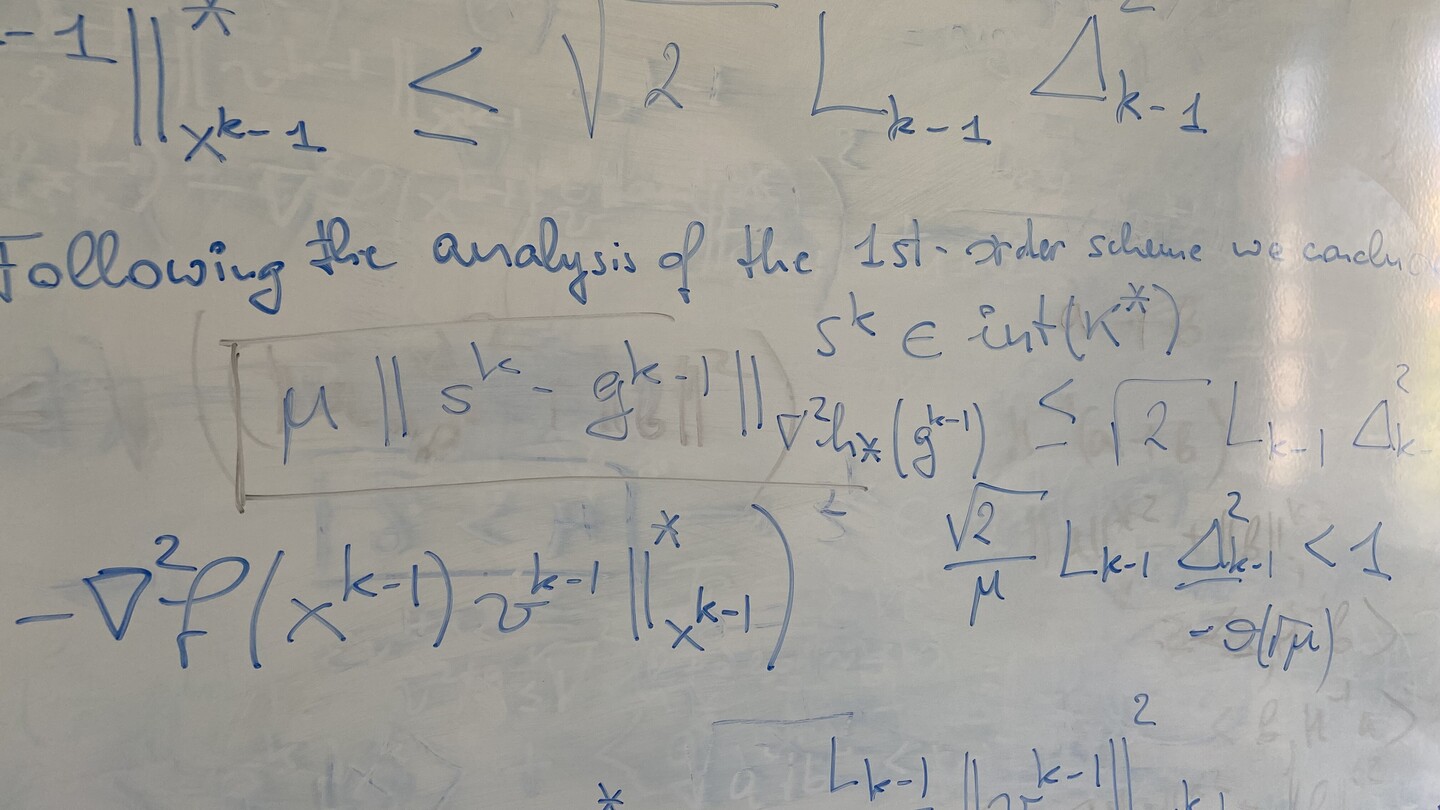 -1‖*_{x^{k-1}} ≤ √2 L_{k-1} Δ²_{k-1}
Following the analysis of the 1st-order scheme we
s^k ∈ int(K*)
μ ‖ s^k - g^{k-1} ‖_{∇²h_*(g^{k-1})} ≤ √2 L_{k-1} Δ²_{k-
-∇²f(x^{k-1}) v^{k-1} ‖*_{x^{k-1}})
√2/μ L_{k-1} Δ²_{k-1} < 1
(√μ)
L_{k-1} ‖v^{k-1}‖²